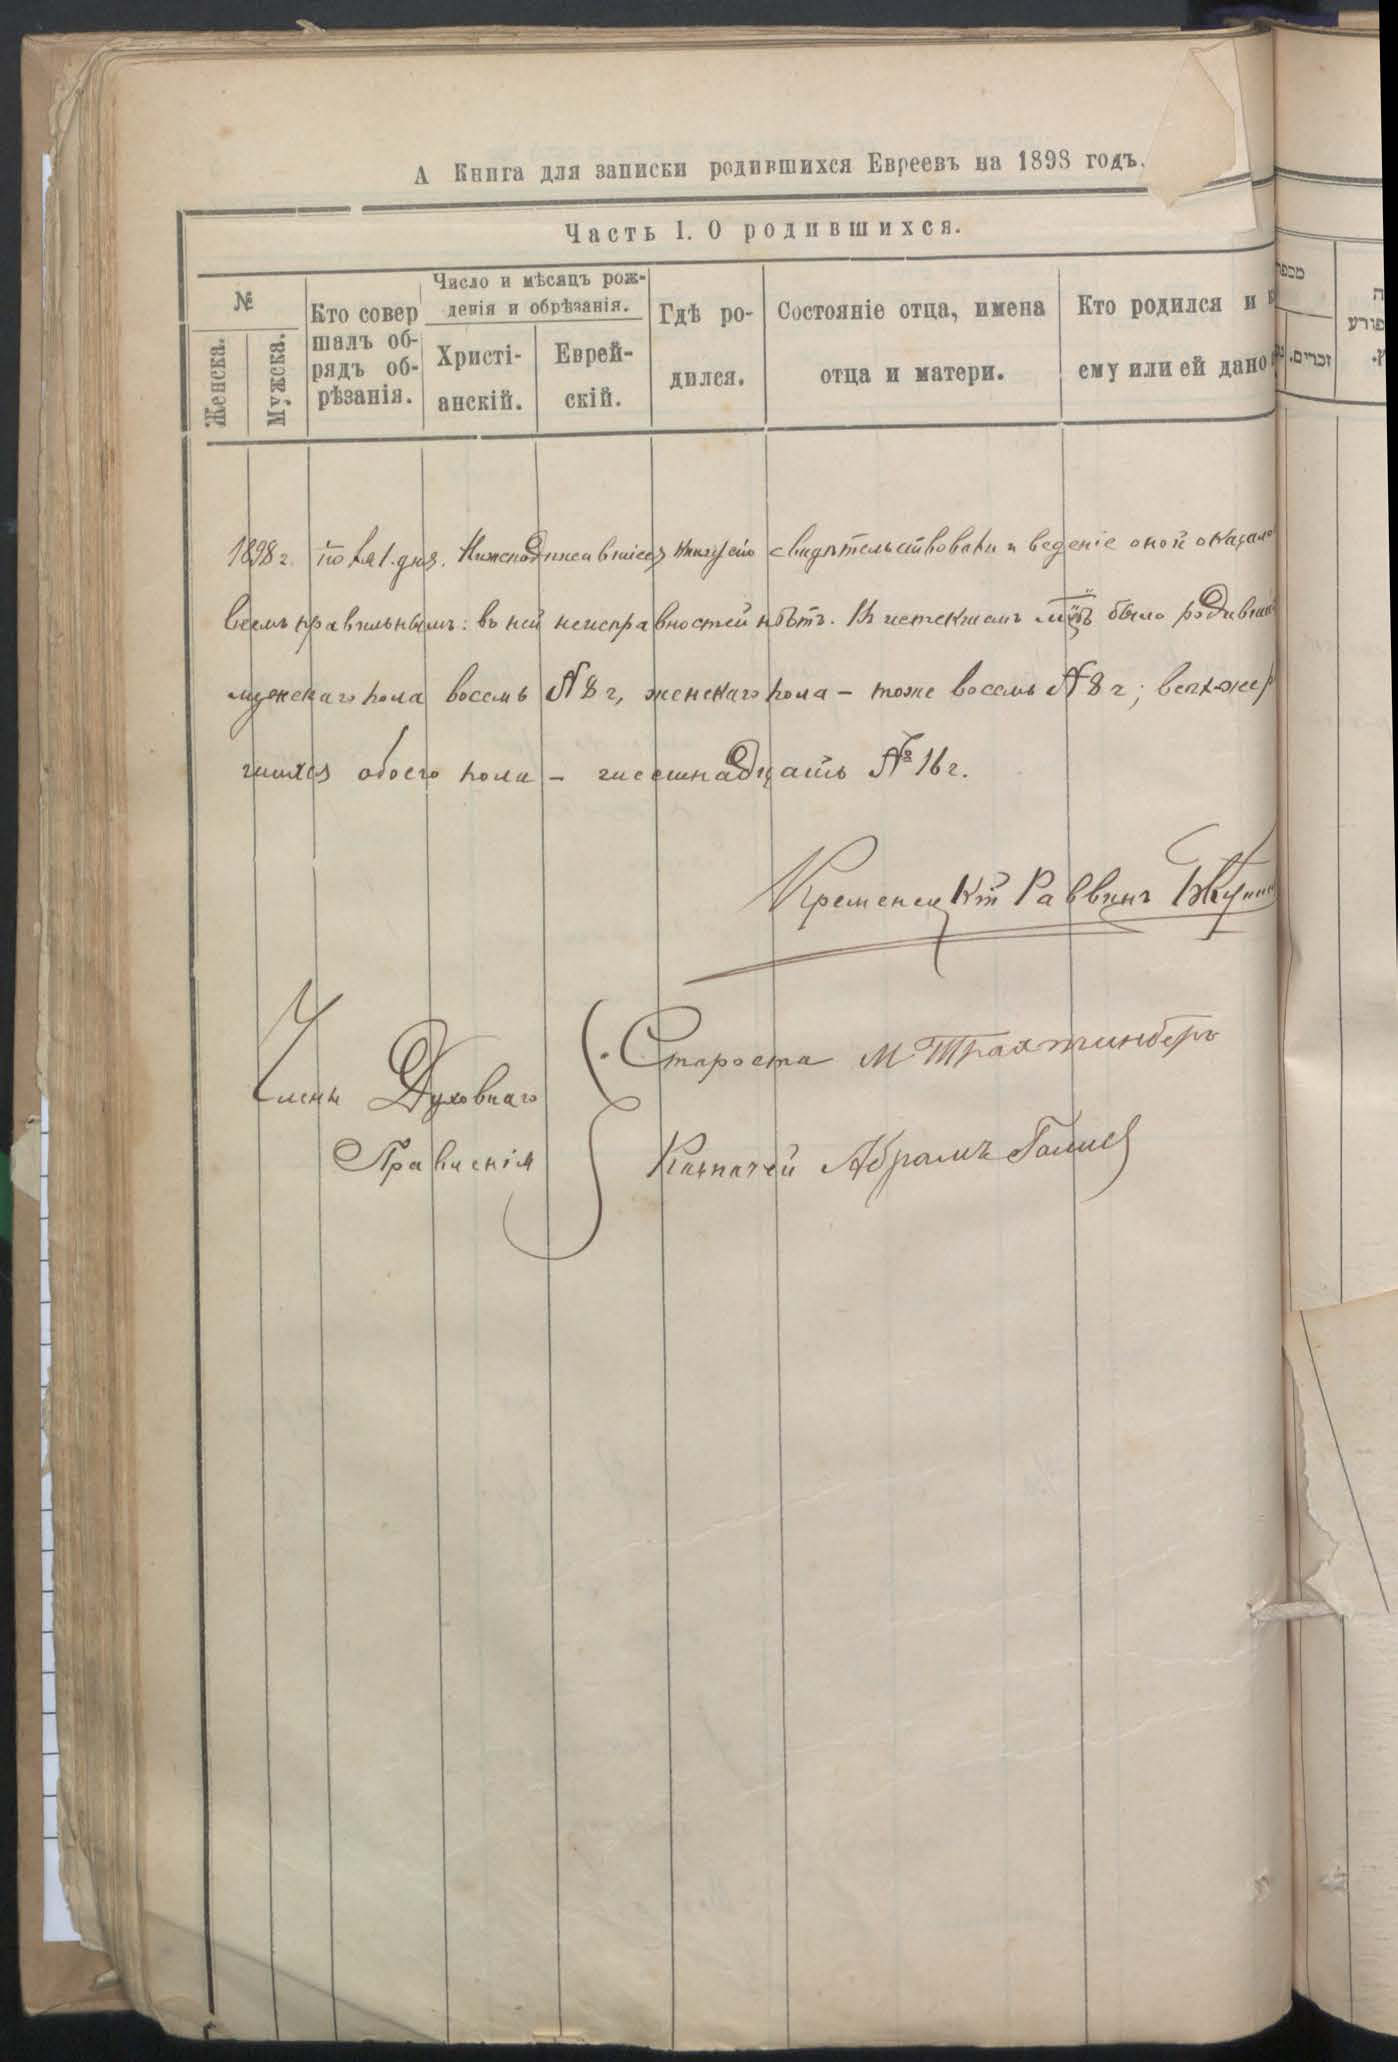 А Книга для записки родившихся Евреевъ на 1898 годъ.
Часть I. О родившихся.
№
Женска.
Мужска.
Кто совер
шалъ об-
рядъ об-
рѣзанія.
Число и мѣсяцъ рож-
денія и обрѣзанія.
Христі-
анскій.
Еврей-
скій.
Гдѣ ро-
дился.
Состояніе отца, имена
отца и матери.
Кто родился и
ему или ей дано
1898 г. дня. Нижеподписавшіеся книгу сію свидѣтельствовали и веденіе оной оказало
всемъ правильнымъ: въ ней неисправностей нѣтъ. Въ истекшемъ м-цѣ было родивши
мужскаго пола восемь № 8 г, женскаго пола – тоже восемь № 8 г; всѣхже р
шихся обоего пола – шестнадцать № 16 г.
Кременецкій Раввинъ
Члены Духовнаго
Правленія
Староста М Трахтинберъ
Казначей Абрамъ
זכרים.